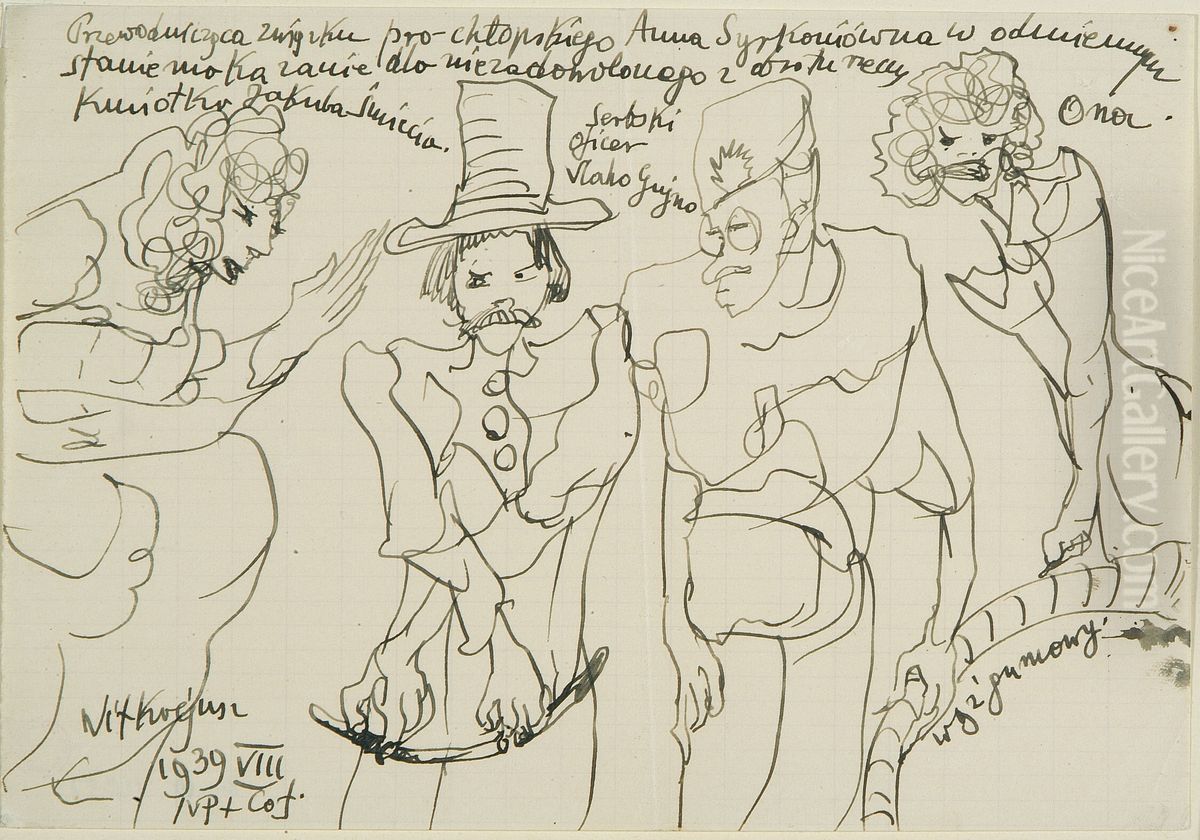 Przewodnicząca związku pro-chłopskiego Anna Syrkoniówna w odmiennym
stanie ma kazanie dla niezadowolonego z obrotu rzeczy
Kmiotka Jakuba Śmiecia.
Serbski
oficer
Vlaho Gujno
Ona.
wąż gumowy.
Witkacjusz
1939 VIII
NP + Cof.
NiceArtGallery.com